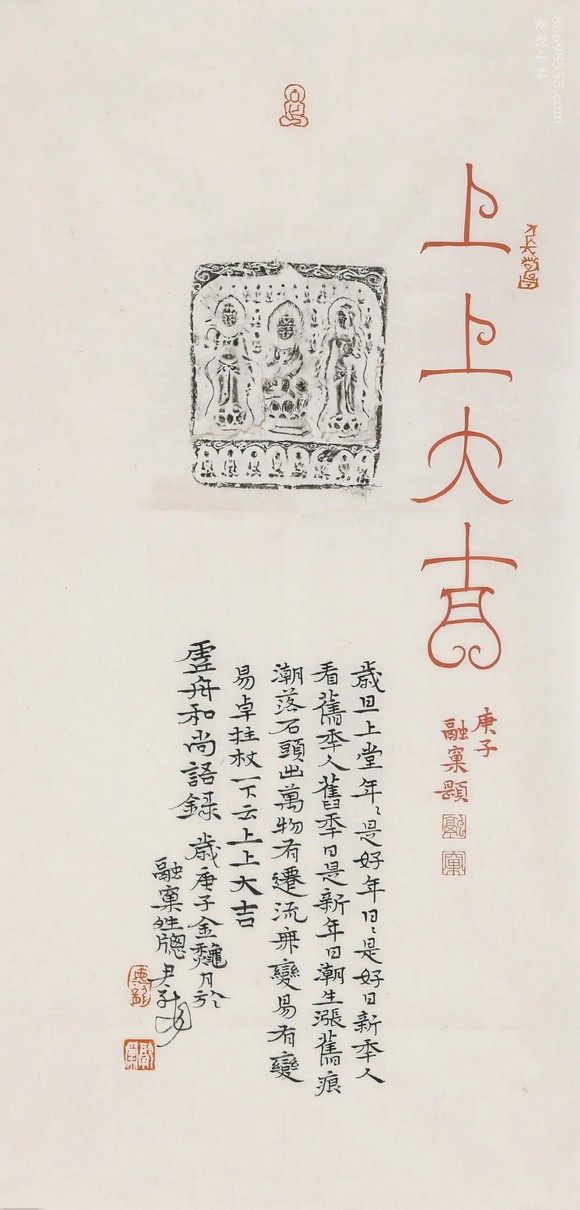 上上大吉
庚子
融窠題
歲旦上堂年〻是好年日〻是好日新年人
看舊年人舊年日是新年日潮生漲舊痕
潮落石頭出萬物有遷流無變易有變
易卓拄杖一下云上上大吉
虛舟和尚語錄
歲庚子金龝月於
融窠
86698355.com